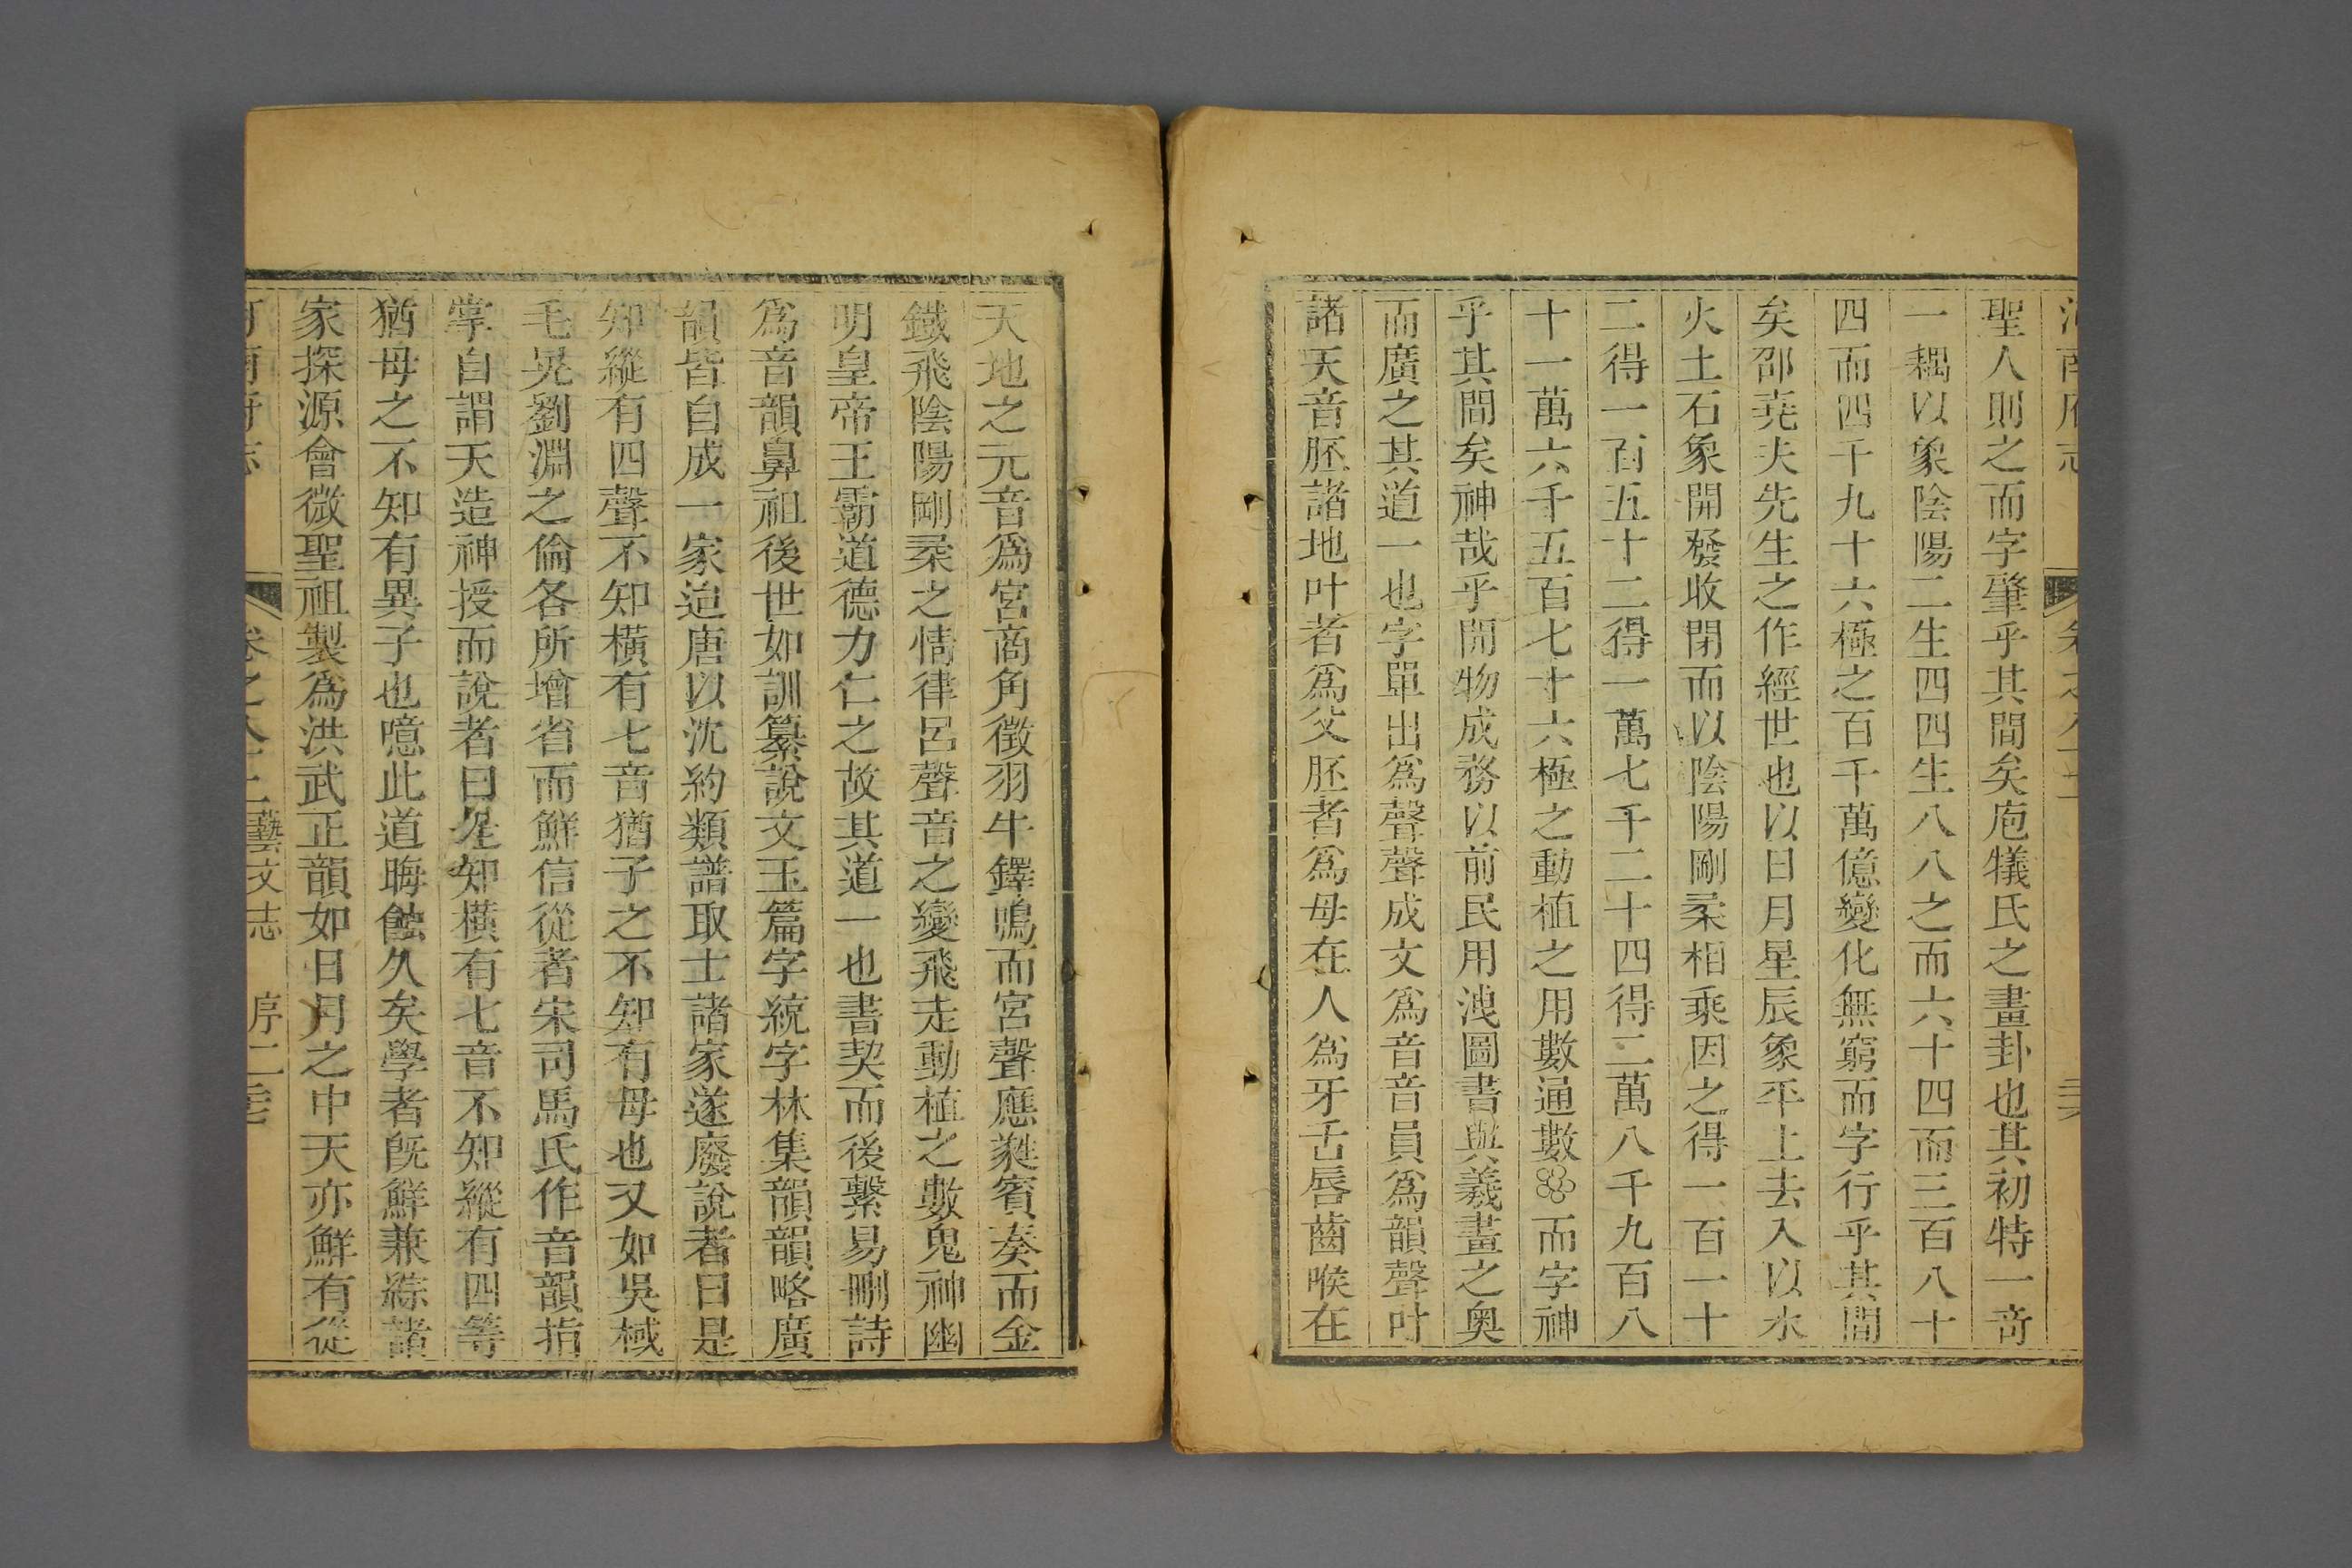 聖人則之而字肇乎其間矣庖犧氏之畫卦也其初特一奇
一耦以象陰陽二生四四生八八之而六十四而三百八十
四而四千九十六極之百千萬億變化無窮而字行乎其間
矣邵堯夫先生之作經世也以日月星辰象平上去入以水
火土石象開發收閉而以陰陽剛柔相乘因之得一百一十
二得一百五十二得一萬七千二十四得二萬八千九百八
十一萬六千五百七十六極之動植之用數通數而字神
乎其間矣神哉乎開物成務以前民用洩圖書與羲畫之奥
而廣之其道一也字單出爲聲聲成文爲音音員爲韻聲叶
諸天音胚諸地叶者爲父胚者爲母在人爲牙舌唇齒喉在
天地之元音爲宮商角徵羽牛鐸鳴而宮聲應蕤賓奏而金
鐵飛陰陽剛柔之情律呂聲音之變飛走動植之數鬼神幽
明皇帝王霸道德力仁之故其道一也書契而後繫易刪詩
爲音韻鼻祖後世如訓纂說文玉篇字統字林集韻韻略廣
韻皆自成一家迨唐以沈約類譜取士諸家遂廢說者曰是
知縱有四聲不知橫有七音猶子之不知有母也又如吳棫
毛晃劉淵之倫各所增省而鮮信從者宋司馬氏作音韻指
掌自謂天造神授而說者曰是知橫有七音不知縱有四等
猶母之不知有異子也噫此道晦蝕久矣學者旣鮮兼綜諸
家探源會微聖祖製爲洪武正韻如日月之中天亦鮮有從
藝文志 序二